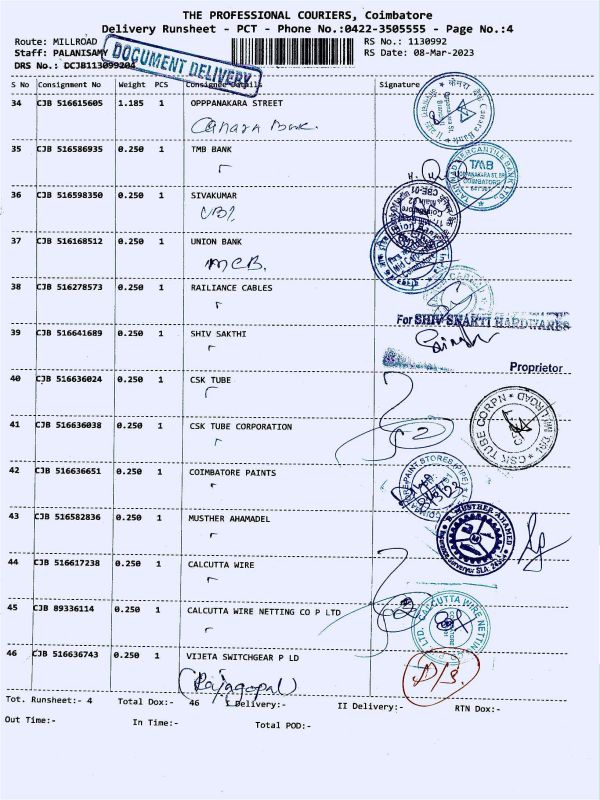 THE PROFESSIONAL COURIERS, Coimbatore
Delivery Runsheet - PCT - Phone No.:0422-3505555 - Page No.:4
Route: MILLROAD RS No.: 1130992
Staff: PALANISAMY RS Date: 08-Mar-2023
DRS No.: DCJB113099204
DOCUMENT DELIVERY
S No Consignment No Weight PCS Consignee Details Signature
34 CJB 516615605 1.185 1 OPPPANAKARA STREET
Canara Bank.
35 CJB 516586935 0.250 1 TMB BANK
TMB
36 CJB 516598350 0.250 1 SIVAKUMAR
UBI
37 CJB 516168512 0.250 1 UNION BANK
MCB.
38 CJB 516278573 1 RAILIANCE CABLES
For SHIV SHAKTI HARDWARES
39 CJB 516641689 0.250 1 SHIV SAKTHI
Proprietor
40 CJB 516636024 0.250 1 CSK TUBE
41 CJB 516636038 0.250 1 CSK TUBE CORPORATION
CSK TUBE CORPN
42 CJB 516636651 0.250 1 COIMBATORE PAINTS
43 CJB 516582836 0.250 1 MUSTHER AHAMADEL
MUSTHER AHAMED
44 CJB 516617238 0.250 1 CALCUTTA WIRE
45 CJB 89336114 0.250 1 CALCUTTA WIRE NETTING CO P LTD
46 CJB 516636743 0.250 1 VIJETA SWITCHGEAR P LD
(Rajagopal)
D/S.
Tot. Runsheet:- 4 Total Dox:- 46 I Delivery:- II Delivery:- RTN Dox:-
Out Time:- In Time:- Total POD:-